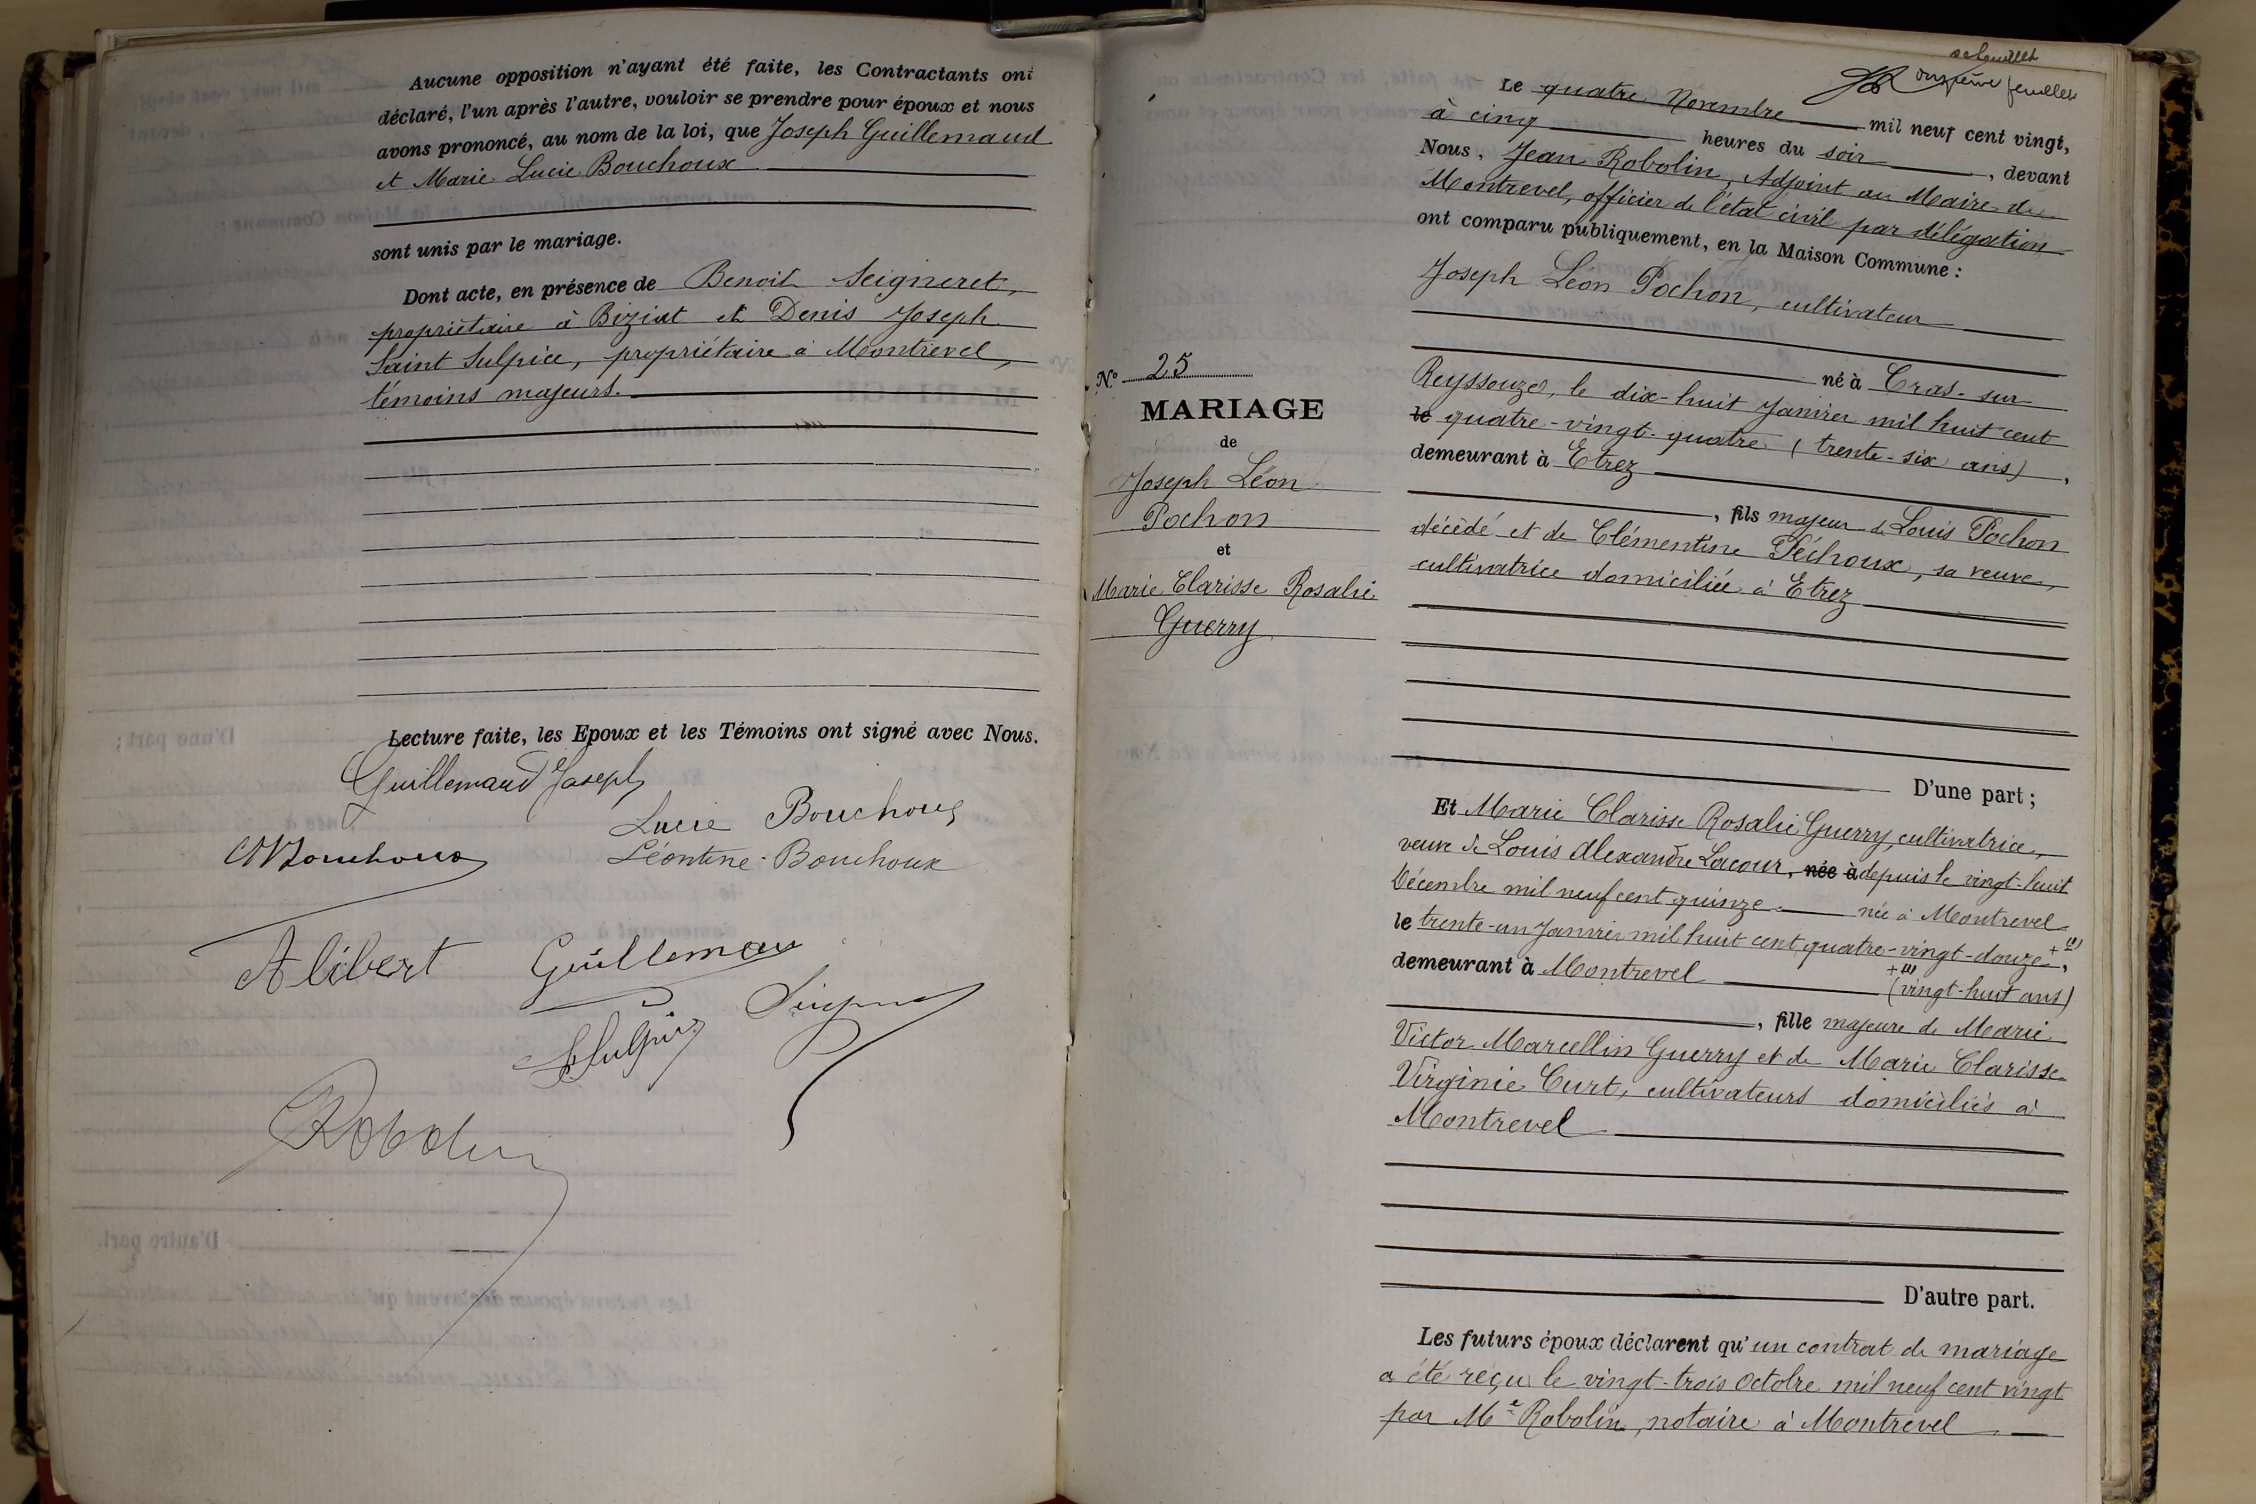 Aucune opposition n'ayant été faite, les Contractants ont
déclaré, l'un après l'autre, vouloir se prendre pour époux et nous
avons prononcé, au nom de la loi, que Joseph Guillemaud
et Marie Lucie Bouchoux
sont unis par le mariage.
Dont acte, en présence de Benoit Seigneret,
propriétaire à Biziat et Denis Joseph
Saint Sulpice, propriétaire à Montrevel,
témoins majeurs.
Lecture faite, les Epoux et les Témoins ont signé avec Nous.
Guillemaud Joseph
Lucie Bouchoux
Bouchoux
Léontine Bouchoux
Alibert
Guillemau
Robolin
onzième feuillet
Le quatre Novembre mil neuf cent vingt,
à cinq heures du soir, devant
Nous, Jean Robolin, Adjoint au Maire de
Montrevel, officier de l'état civil par délégation
ont comparu publiquement, en la Maison Commune :
Joseph Léon Pochon, cultivateur
né à Cras-sur
Reyssouze, le dix-huit Janvier mil huit cent
le quatre-vingt-quatre (trente-six ans)
demeurant à Etrez,
, fils majeur de Louis Pochon
décédé et de Clémentine Péchoux, sa veuve,
cultivatrice domiciliée à Etrez
D'une part ;
N.º 25
MARIAGE
de
Joseph Léon
Pochon
et
Marie Clarisse Rosalie
Guerry
Et Marie Clarisse Rosalie Guerry, cultivatrice,
veuve de Louis Alexandre Lacour, née à depuis le vingt-huit
Décembre mil neuf cent quinze. née à Montrevel
le trente-un Janvier mil huit cent quatre-vingt-douze + (1),
demeurant à Montrevel + (1) (vingt-huit ans)
, fille majeure de Marie
Victor Marcellin Guerry et de Marie Clarisse
Virginie Curt, cultivateurs domiciliés à
Montrevel
D'autre part.
Les futurs époux déclarent qu'un contrat de mariage
a été reçu le vingt-trois octobre mil neuf cent vingt
par Me Robolin, notaire à Montrevel